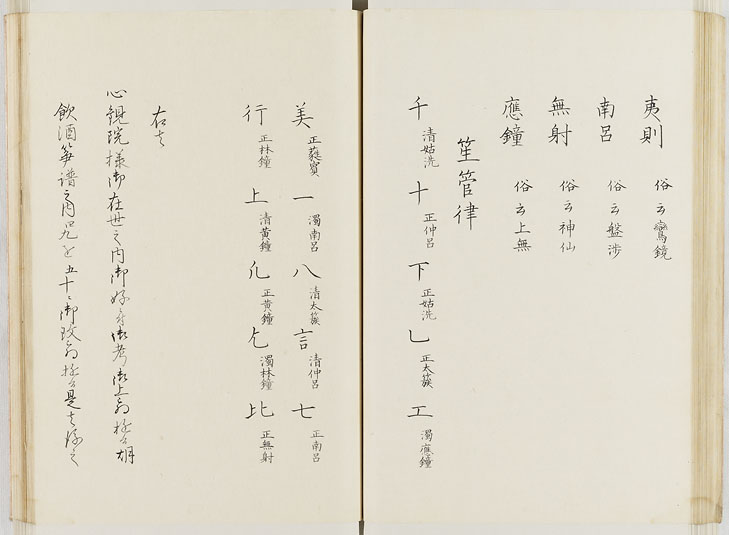 夷則 俗云鸞鏡
南呂 俗云盤渉
無射 俗云神仙
應鐘 俗云上無
笙管律
千 清姑洗 十 正仲呂 下 正姑洗 乚 正太簇 工 濁應鐘
美 正蕤賓 一 濁南呂 八 清太簇 言 清仲呂 七 正南呂
行 正林鐘 上 清黄鐘 凢 正黄鐘 乞 濁林鐘 比 正無射
右者
心觀院様御在世之内御好
飲酒笋譜之内 五十 御改 是